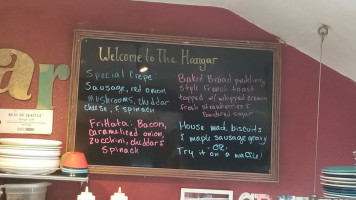 ar
BEST OF SEATTLE
Welcome to The Hangar
Special Crepe:
Sausage, red onion
mushrooms, cheddar
cheese, & spinach
Frittata: Bacon,
caramelized onion,
zucchini, cheddar &
spinach
Baked Bread pudding
style French toast
topped w/ whipped cream
fresh strawberries &
powdered sugar
House made biscuits
& maple sausage gravy
-OR-
Try it on a waffle!